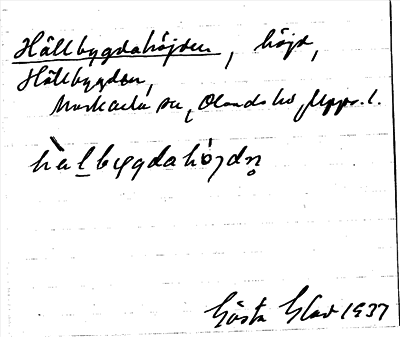 Hällbygdahöjden, höjd,
Hällbygden,
Morkarla sn, Olands hd, Upps. l.
hàl̲bygdahöjdn̥
Gösta Glad 1937